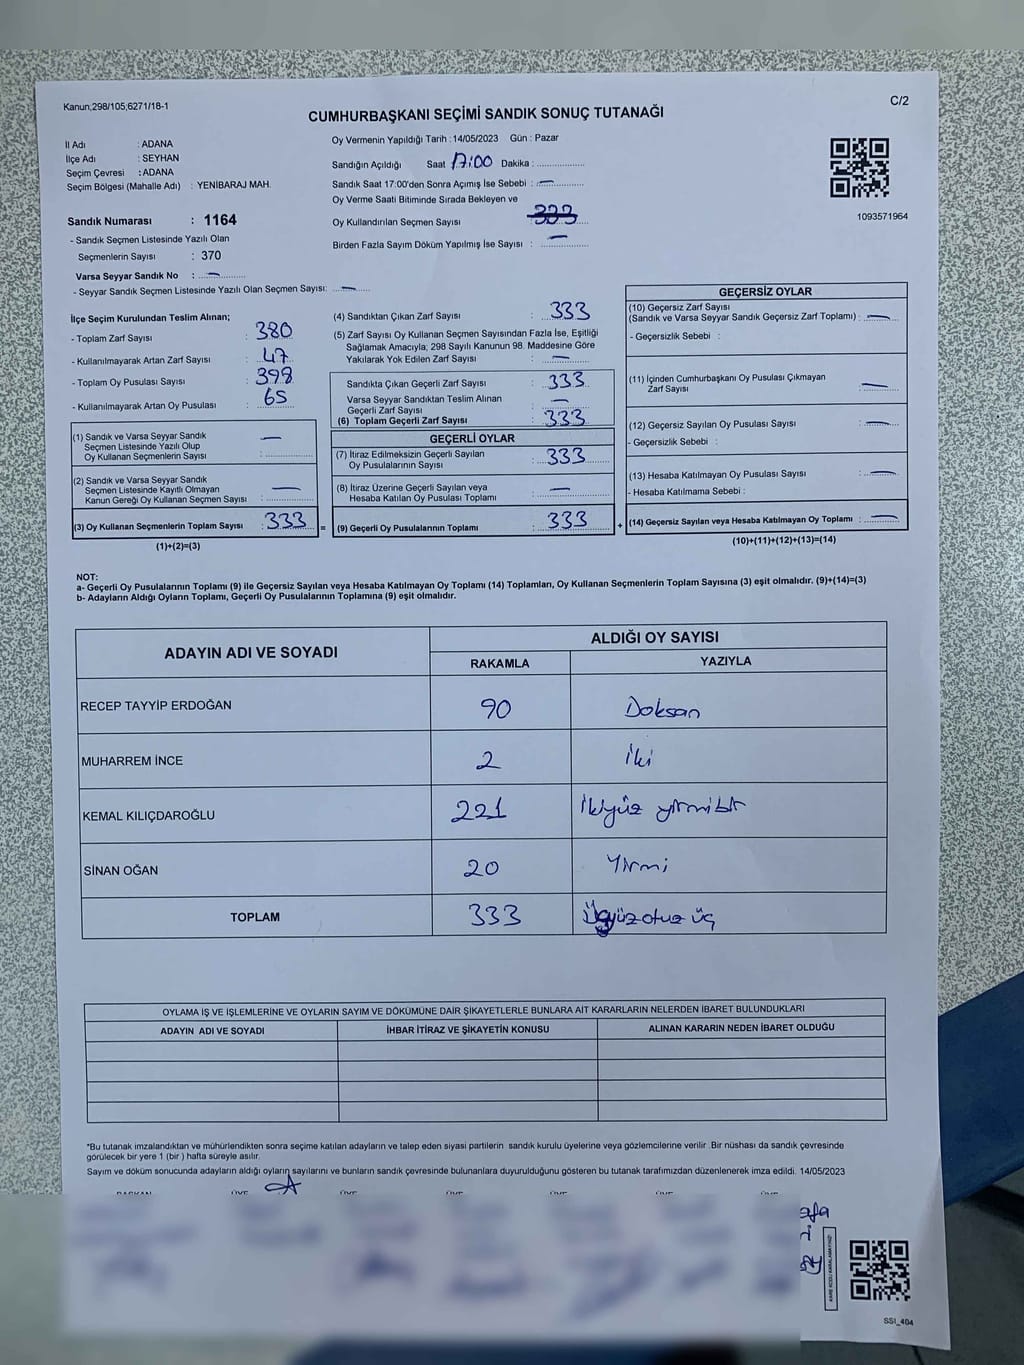 Kanun;298/105;6271/18-1
C/2
CUMHURBAŞKANI SEÇİMİ SANDIK SONUÇ TUTANAĞI
İl Adı : ADANA
İlçe Adı : SEYHAN
Seçim Çevresi : ADANA
Seçim Bölgesi (Mahalle Adı) : YENİBARAJ MAH.
Sandık Numarası : 1164
- Sandık Seçmen Listesinde Yazılı Olan
Seçmenlerin Sayısı : 370
Varsa Seyyar Sandık No : —
- Seyyar Sandık Seçmen Listesinde Yazılı Olan Seçmen Sayısı: —
Oy Vermenin Yapıldığı Tarih : 14/05/2023 Gün : Pazar
Sandığın Açıldığı Saat 17:00 Dakika :
Sandık Saat 17:00'den Sonra Açımış İse Sebebi : —
Oy Verme Saati Bitiminde Sırada Bekleyen ve
Oy Kullandırılan Seçmen Sayısı : 333
Birden Fazla Sayım Döküm Yapılmış İse Sayısı : —
1093571964
İlçe Seçim Kurulundan Teslim Alınan;
- Toplam Zarf Sayısı : 380
- Kullanılmayarak Artan Zarf Sayısı : 47
- Toplam Oy Pusulası Sayısı : 398
- Kullanılmayarak Artan Oy Pusulası : 65
(1) Sandık ve Varsa Seyyar Sandık
Seçmen Listesinde Yazılı Olup
Oy Kullanan Seçmenlerin Sayısı : —
(2) Sandık ve Varsa Seyyar Sandık
Seçmen Listesinde Kayıtlı Olmayan
Kanun Gereği Oy Kullanan Seçmen Sayısı : —
(3) Oy Kullanan Seçmenlerin Toplam Sayısı : 333 =
(1)+(2)=(3)
(4) Sandıktan Çıkan Zarf Sayısı : 333
(5) Zarf Sayısı Oy Kullanan Seçmen Sayısından Fazla İse, Eşitliği
Sağlamak Amacıyla; 298 Sayılı Kanunun 98. Maddesine Göre
Yakılarak Yok Edilen Zarf Sayısı : —
Sandıkta Çıkan Geçerli Zarf Sayısı : 333
Varsa Seyyar Sandıktan Teslim Alınan
Geçerli Zarf Sayısı : —
(6) Toplam Geçerli Zarf Sayısı : 333
GEÇERLİ OYLAR
(7) İtiraz Edilmeksizin Geçerli Sayılan
Oy Pusulalarının Sayısı : 333
(8) İtiraz Üzerine Geçerli Sayılan veya
Hesaba Katılan Oy Pusulası Toplamı : —
(9) Geçerli Oy Pusulalarının Toplamı : 333 +
GEÇERSİZ OYLAR
(10) Geçersiz Zarf Sayısı
(Sandık ve Varsa Seyyar Sandık Geçersiz Zarf Toplamı) : —
- Geçersizlik Sebebi :
(11) İçinden Cumhurbaşkanı Oy Pusulası Çıkmayan
Zarf Sayısı : —
(12) Geçersiz Sayılan Oy Pusulası Sayısı : —
- Geçersizlik Sebebi :
(13) Hesaba Katılmayan Oy Pusulası Sayısı : —
- Hesaba Katılmama Sebebi :
(14) Geçersiz Sayılan veya Hesaba Katılmayan Oy Toplamı : —
(10)+(11)+(12)+(13)=(14)
NOT:
a- Geçerli Oy Pusulalarının Toplamı (9) ile Geçersiz Sayılan veya Hesaba Katılmayan Oy Toplamı (14) Toplamları, Oy Kullanan Seçmenlerin Toplam Sayısına (3) eşit olmalıdır. (9)+(14)=(3)
b- Adayların Aldığı Oyların Toplamı, Geçerli Oy Pusulalarının Toplamına (9) eşit olmalıdır.
ADAYIN ADI VE SOYADI
ALDIĞI OY SAYISI
RAKAMLA YAZIYLA
RECEP TAYYİP ERDOĞAN 90 Doksan
MUHARREM İNCE 2 İki
KEMAL KILIÇDAROĞLU 221 İkiyüz yirmibir
SİNAN OĞAN 20 Yirmi
TOPLAM 333 Üçyüz otuz üç
OYLAMA İŞ VE İŞLEMLERİNE VE OYLARIN SAYIM VE DÖKÜMÜNE DAİR ŞİKAYETLERLE BUNLARA AİT KARARLARIN NELERDEN İBARET BULUNDUKLARI
ADAYIN ADI VE SOYADI İHBAR İTİRAZ VE ŞİKAYETİN KONUSU ALINAN KARARIN NEDEN İBARET OLDUĞU
*Bu tutanak imzalandıktan ve mühürlendikten sonra seçime katılan adayların ve talep eden siyasi partilerin sandık kurulu üyelerine veya gözlemcilerine verilir .Bir nüshası da sandık çevresinde
görülecek bir yere 1 (bir ) hafta süreyle asılır.
Sayım ve döküm sonucunda adayların aldığı oyların sayılarını ve bunların sandık çevresinde bulunanlara duyurulduğunu gösteren bu tutanak tarafımızdan düzenlenerek imza edildi. 14/05/2023
BAŞKAN ÜYE ÜYE ÜYE ÜYE ÜYE ÜYE
KARE KODU KARALAMAYINIZ!
SSI_404